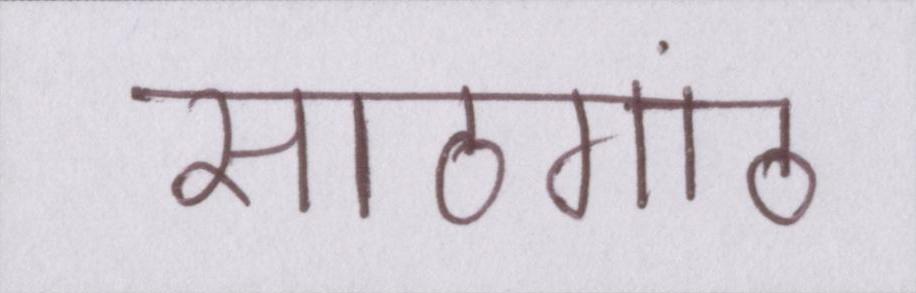 साठगांठ